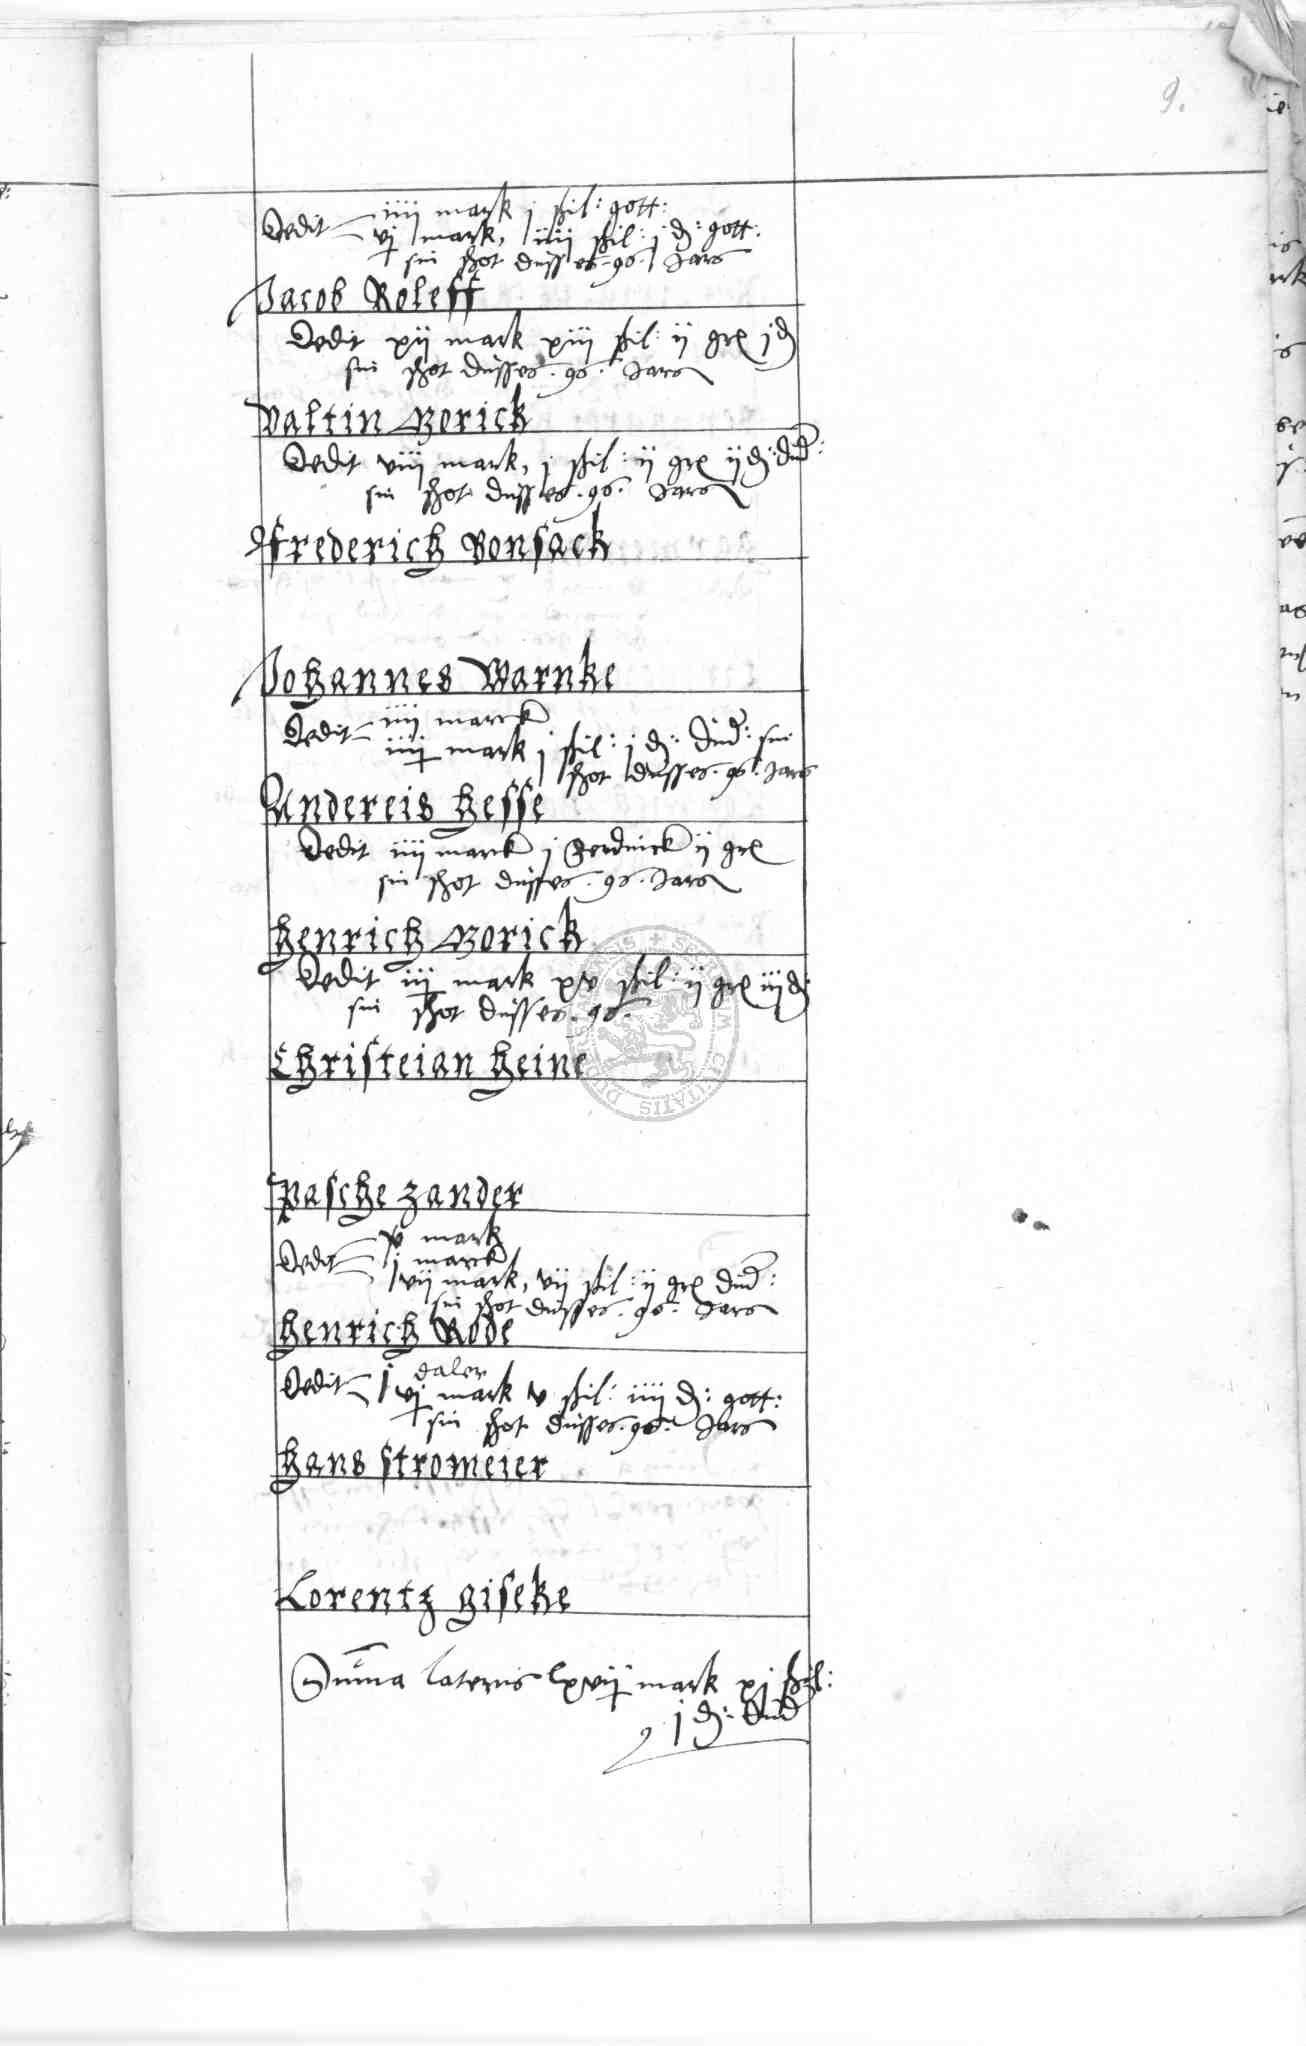 9.
Dedit iiii mark j shil: gott:
vj mark, iiii shil: j d: gott:
sin shot dusses .96. Jars
Jacob Roleff
Dedit xij mark xiii shil: ij gr j d
sin shot dusses .96. Jars
Valtin Borick
Dedit viij mark, j shil: ij gr ij d: dud:
sin shot dusses .96. Jars
Frederich Bonsack
Johannes Warnke
Dedit iiii marck
iiij mark j shil: j d: dud: sin
shot dusses .96. Jars
Andereis Hesse
Dedit iiii marck j ferdinck ij gr
sin shot dusses .96. Jars
Henrich Borick
Dedit iij mark xv shil: ij gr iij d
sin shot dusses .96.
Christeian Heine
Pasche Zander
Dedit v mark
j marck
vij mark, vij shil: ij gr dud:
sin shot dusses .96. Jars
Henrich Rode
Dedit j daler
vj mark v shil: iiii d: gott:
sin shot dusses .96. Jars
Hans Stromeier
Lorentz Giseke
Summa lateris lxvij mark xj shil:
j d: dud